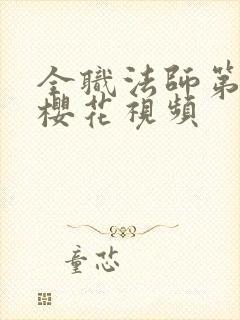 全職法師第
櫻花視頻
童芯